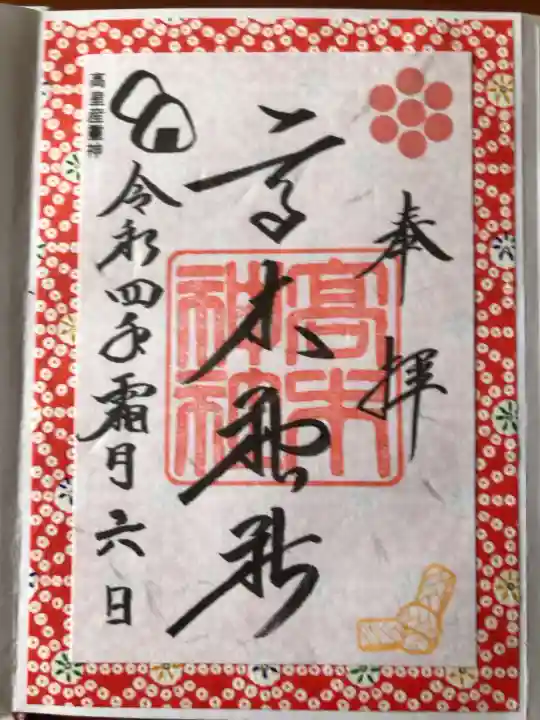 奉拝
高木神社
高木神社
高皇産霊神
令和四年霜月六日